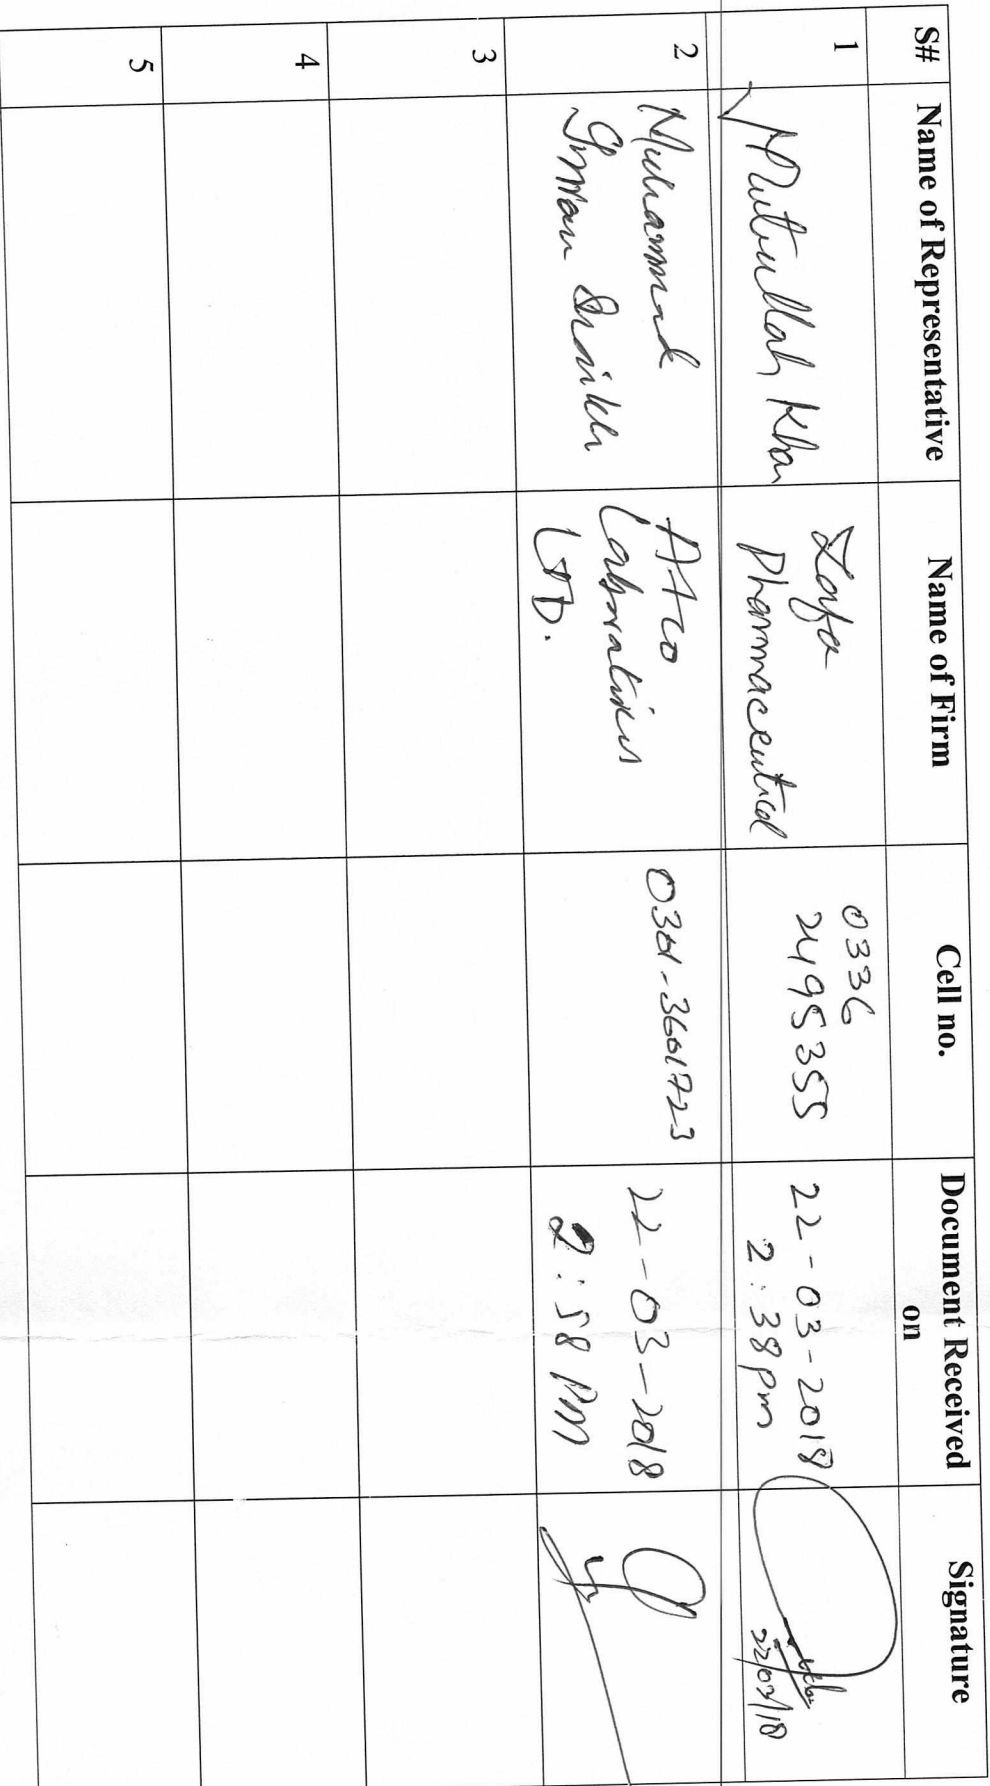 S# Name of Representative Name of Firm Cell no. Document Received on Signature
1 Mutiullah Khan Zafa Pharmaceutical 0336 2495355 22-03-2018 2:38pm 22/03/18
2 Muhammad Imran Shaikh Atco Laboratories LTD. 0301-3601723 22-03-2018 2:58 PM
3
4
5